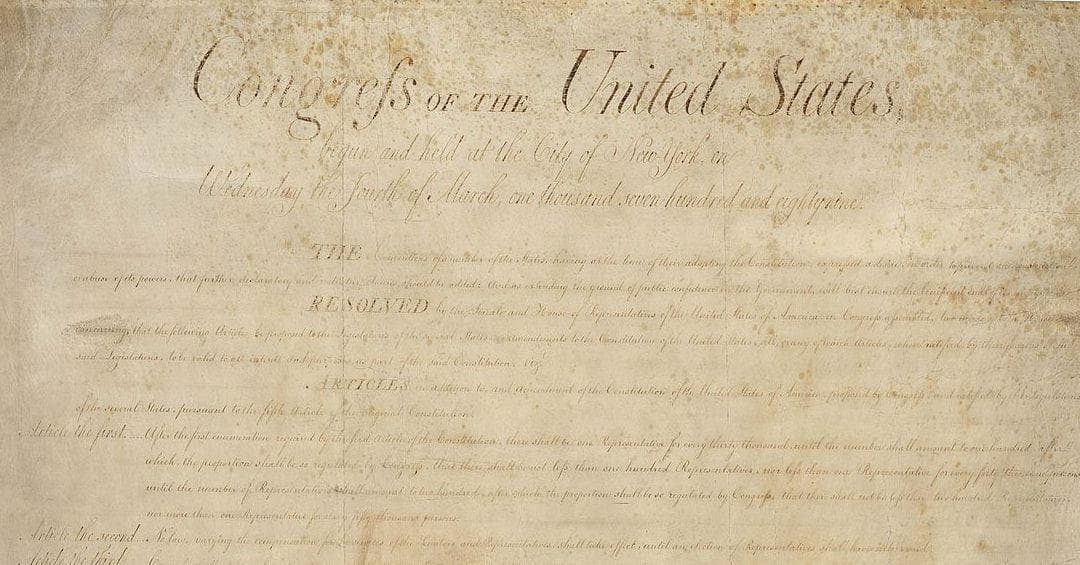 Congreſs OF THE United States,
begun and held at the City of New York, on
Wednesday the fourth of March, one thousand seven hundred and eighty nine.
THE Conventions of a number of the States, having at the time of their adopting the Constitution, expressed a desire, in order to prevent misconstruction
or abuse of its powers, that further declaratory and restrictive clauses should be added: And as extending the ground of public confidence in the Government, will best ensure the beneficent ends of its
RESOLVED by the Senate and House of Representatives of the United States of America, in Congreſs aſsembled, two thirds of
concurring, that the following Articles be proposed to the Legislatures of the several States, as amendments to the Constitution of the United States, all, or any of which Articles, when ratified by three fourths of the
said Legislatures, to be valid to all intents and purposes, as part of the said Constitution; viz.
ARTICLES in addition to, and Amendment of the Constitution of the United States of America, proposed by Congreſs, and ratified by the Legislatures
of the several States, pursuant to the fifth Article of the original Constitution.
Article the first.... After the first enumeration required by the first Article of the Constitution, there shall be one Representative for every thirty thousand, until the number shall amount to one hundred, after
which, the proportion shall be so regulated by Congreſs, that there shall be not leſs than one hundred Representatives, nor leſs than one Representative for every forty thousand persons,
until the number of Representatives shall amount to two hundred, after which the proportion shall be so regulated by Congreſs, that there shall not be leſs than two hundred Representatives,
nor more than one Representative for every fifty thousand persons.
Article the second... No law, varying the compensation for the services of the Senators and Representatives, shall take effect, until an election of Representatives shall have intervened.
Article the third